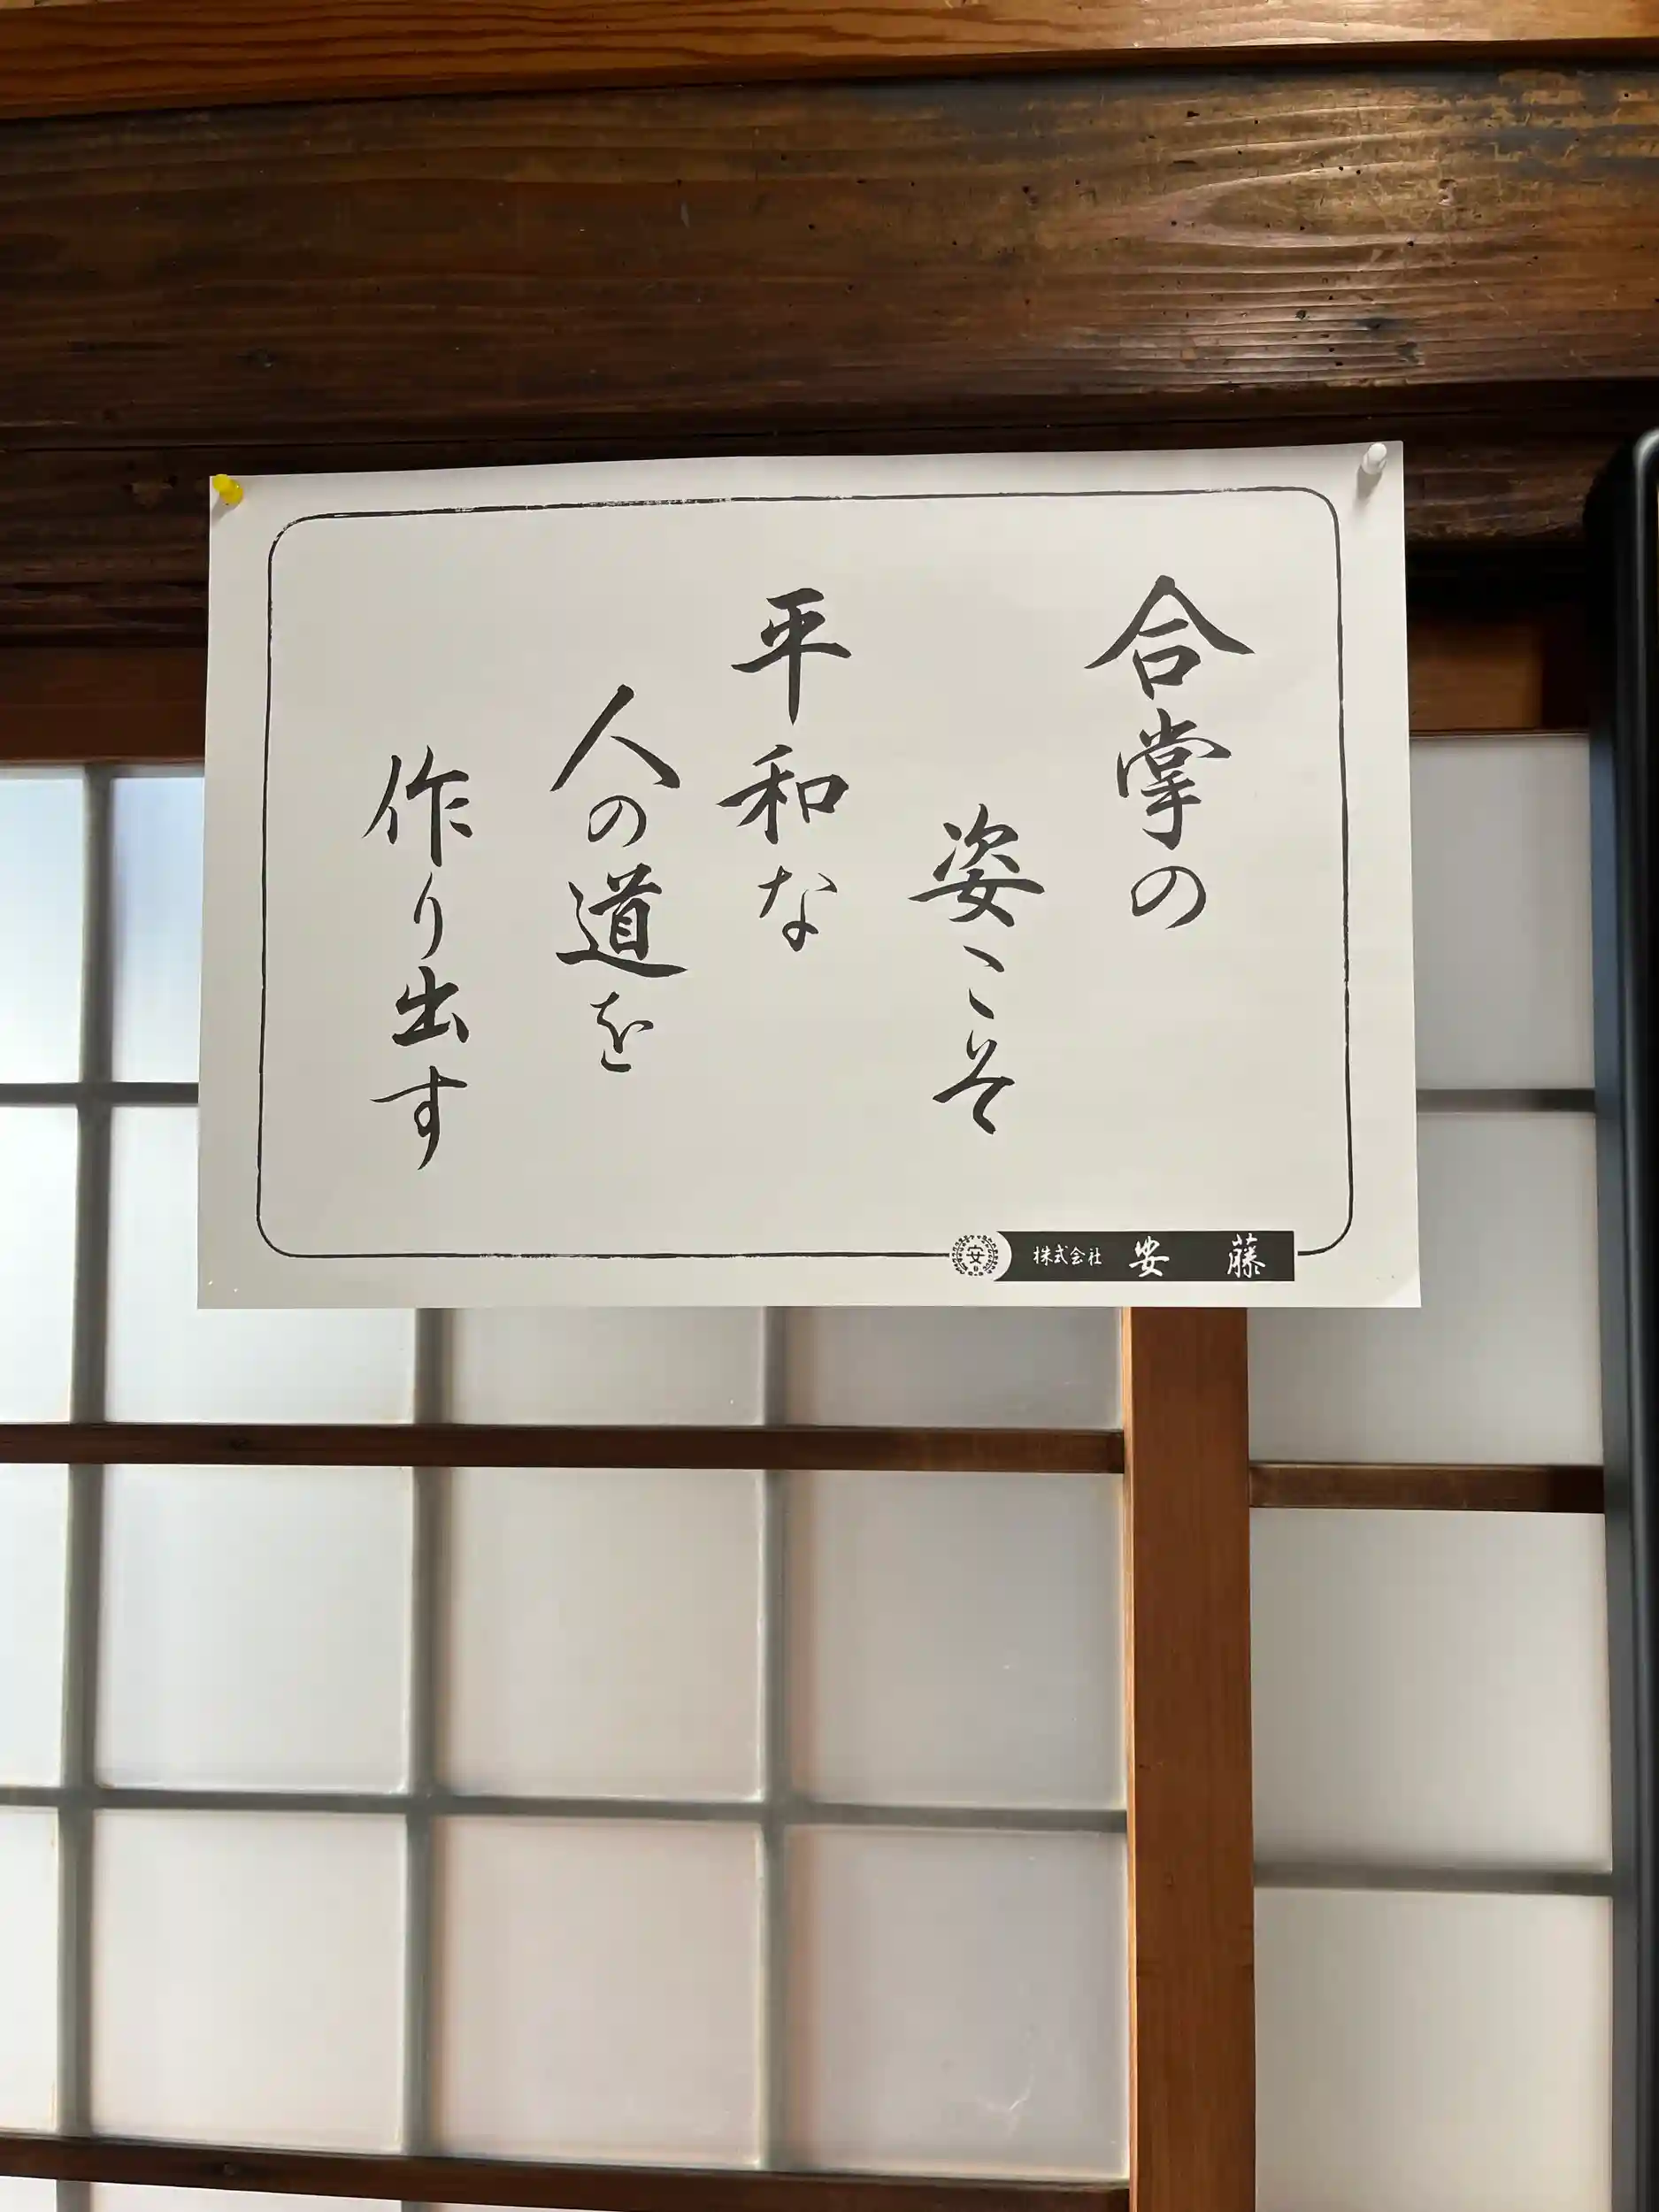 合掌の
姿こそ
平和な
人の道を
作り出す
安
株式会社 安藤